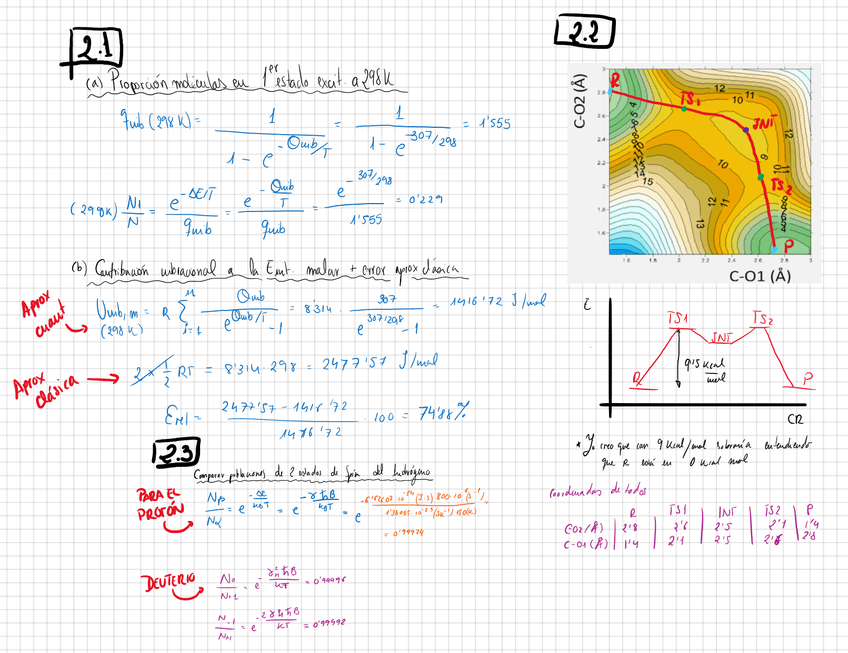 2.1
(a) Proporción moléculas en 1er estado excit. a 298K
qvib (298K) = 1 / (1 - e^(-Θvib/T)) = 1 / (1 - e^(-307/298)) = 1'555
(298K) N1/N = e^(-ΔE/T) / qvib = e^(-Θvib/T) / qvib = e^(-307/298) / 1'555 = 0'229
(b) Contribución vibracional a la E int. molar + error aprox clásica
Aprox cuant
Uvib,m (298K) = R Σ i=1 Θvib / (e^(Θvib/T) - 1) = 8'314 · 307 / (e^(307/298) - 1) = 1416'72 J/mol
Aprox clásica
2 × 1/2 RT = 8'314 · 298 = 2477'57 J/mol
Erel = (2477'57 - 1416'72) / 1416'72 · 100 = 74'88%
2.3
Comparar poblaciones de 2 estados de spin del hidrógeno
PARA EL PROTÓN
Nβ/Nα = e^(-ΔE/kBT) = e^(-γħB/kBT) = e
= 0'99974
DEUTERIO
N0/N+1 = e^(-γħB/KT) = 0'99996
N-1/N+1 = e^(-2γħB/KT) = 0'99992
2.2
C-O2 (Å)
3
2.8
2.6
2.4
2.2
2
1.8
1.6
R
TS1
INT
TS2
P
12
11
10
15
10
9
12
10
11
12
11
13
1.6
1.8
2
2.2
2.4
2.6
2.8
3
C-O1 (Å)
TS1
TS2
INT
R
9'5 Kcal/mol
P
CR
* Yo creo que con 9 Kcal/mol sobraría entendiendo
que R está en 0 kcal mol
Coordenadas de todos
R TS1 INT TS2 P
C-O2 (Å) 2'8 2'6 2'5 2'1 1'4
C-O1 (Å) 1'4 2'1 2'5 2'6 2'8